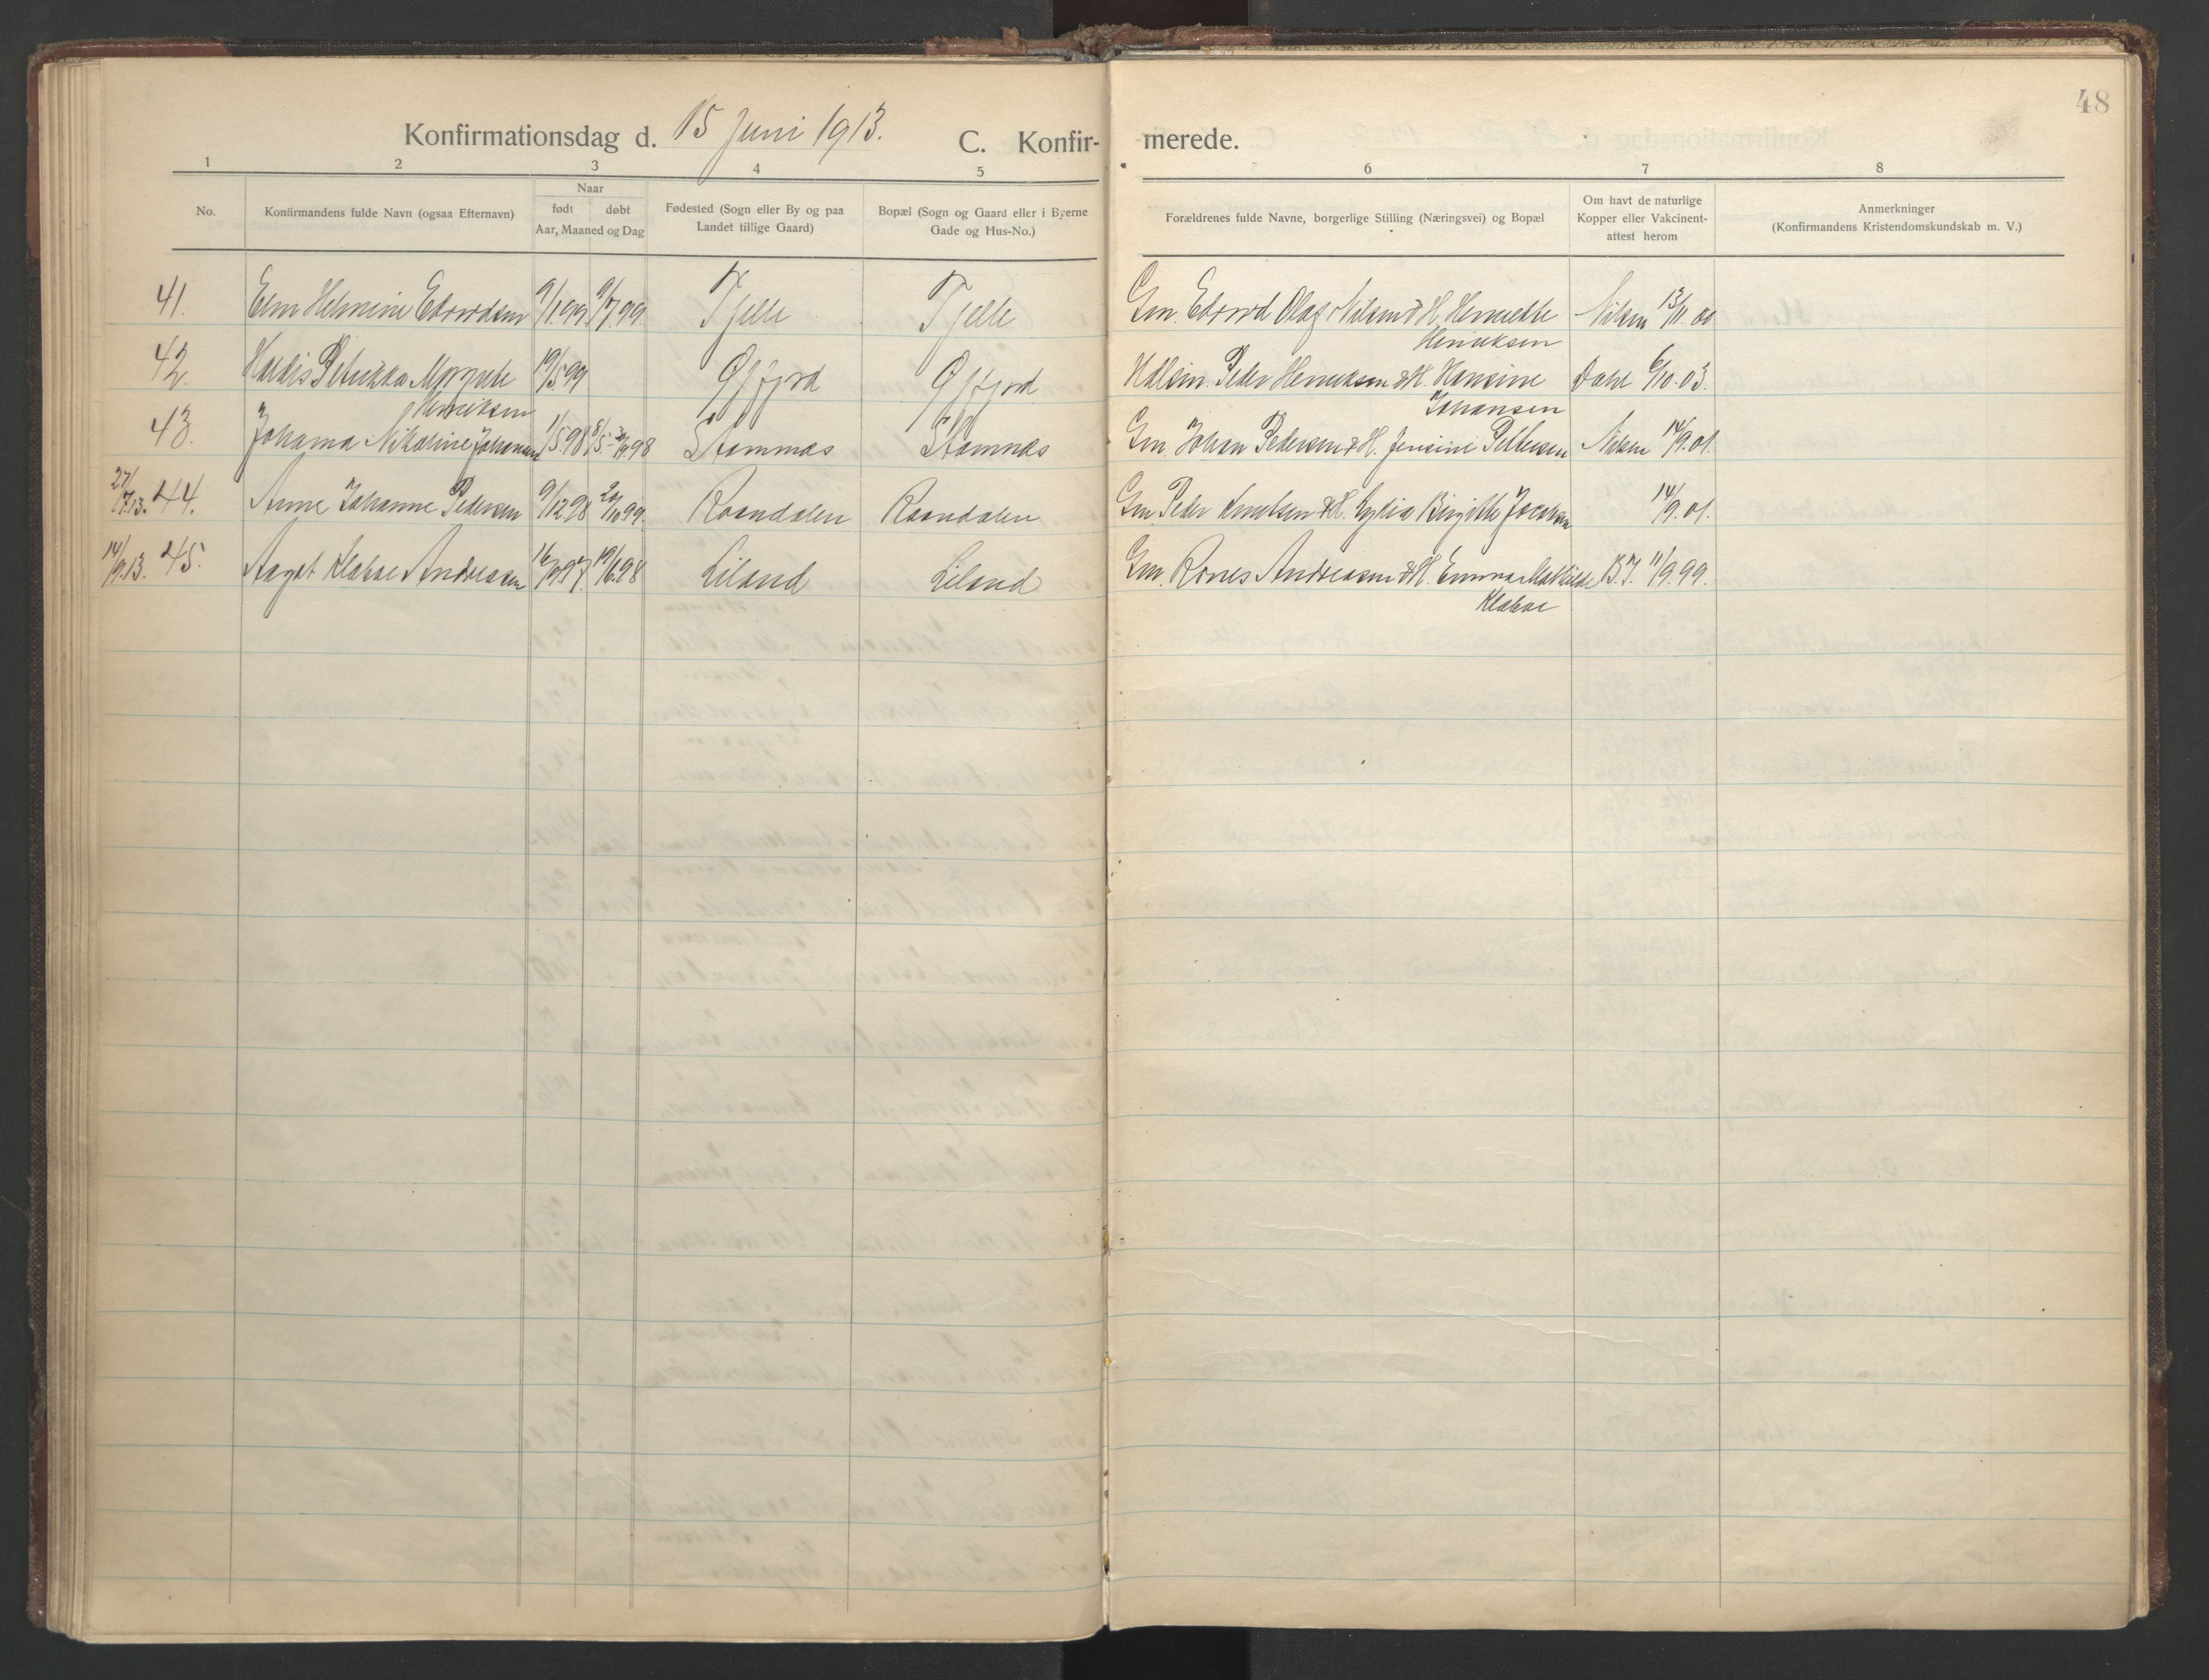 48
Konfirmationsdag d. 15 Juni 1913. C. Konfir-merede.
1 2 3 4 5 6 7 8
No.
Konfirmandens fulde Navn (ogsaa Efternavn)
Naar
født døbt
Aar, Maaned og Dag
Fødested (Sogn eller By og paa
Landet tillige Gaard)
Bopæl (Sogn og Gaard eller i Byerne
Gade og Hus-No.)
Forældrenes fulde Navne, borgerlige Stilling (Næringsvei) og Bopæl
Om havt de naturlige
Kopper eller Vakcinent-
attest herom
Anmerkninger
(Konfirmandens Kristendomskundskab m. V.)
41. Helmine Edvardsen 9/1.99. 9/7.99. Tjelle Tjelle Gm. Edvard Olaf Nilsen & H. Nilsen 13/11.00
Henriksen
42. Petrikka Margrete 19/5 99 Gjfjord Gjfjord Peder Henriksen & H. Hansine Dahl 6/10.03.
Henriksen Johansen
43. Johanna Nikoline Johansen 1/5.98 Stamnæs Stamnæs Gm. Johan Pedersen & H. Jensine Pettersen Nilsen 14/9.01.
27/7.13. 44. Anne Johanne Pedersen 9/12 98 20/10 99. Raandalen Raandalen Gm. Peder Knutsen & H. Lydia Birgitte Jacobsen 14/9.01.
14/9.13. 45. Aagot Klæboe Andreasen 16/9.97. 19/6.98 Liland Liland Gm. Andreasen & H. Emma Mathilde 11/9.99.
Klæboe